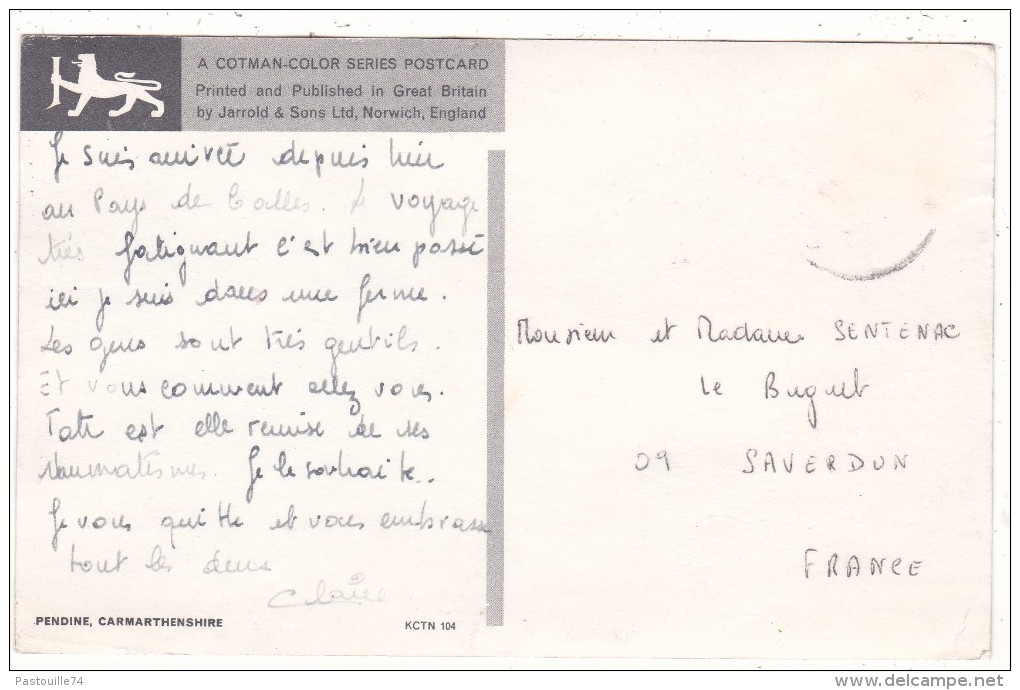 A COTMAN-COLOR SERIES POSTCARD
Printed and Published in Great Britain
by Jarrold & Sons Ltd, Norwich, England
Je suis arrivée depuis hier
au Pays de Galles. Le voyage
très fatiguant c'est bien passé
ici je suis dans une ferme.
Les gens sont très gentils.
Et vous comment allez vous.
Tata est elle remise de ses
rhumatismes. Je le souhaite..
Je vous quitte et vous embrasse
tout les deux
Claire
PENDINE, CARMARTHENSHIRE
KCTN 104
Monsieur et Madame SENTENAC
Le Buguet
09 SAVERDUN
FRANCE
Pastouille74
delcampe.net